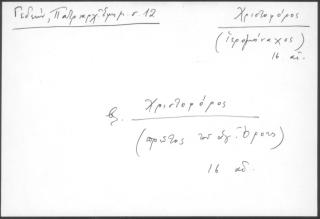 Γεδεών, Πατριαρχ. Ἐφημ. σ. 12
Χριστοφόρος
(ἱερομόναχος)
16 αἰ.
βλ. Χριστοφόρος
(πρῶτος τοῦ ἁγ. Ὄρους)
16 αἰ.